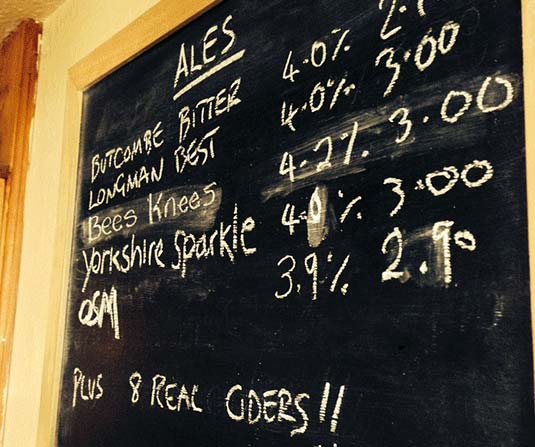 ALES
BUTCOMBE BITTER 4.0%
LONGMAN BEST 4.0% 3.00
Bees Knees 4.2% 3.00
Yorkshire Sparkle 4.0% 3.00
OSM 3.9% 2.90
PLUS 8 REAL CIDERS!!